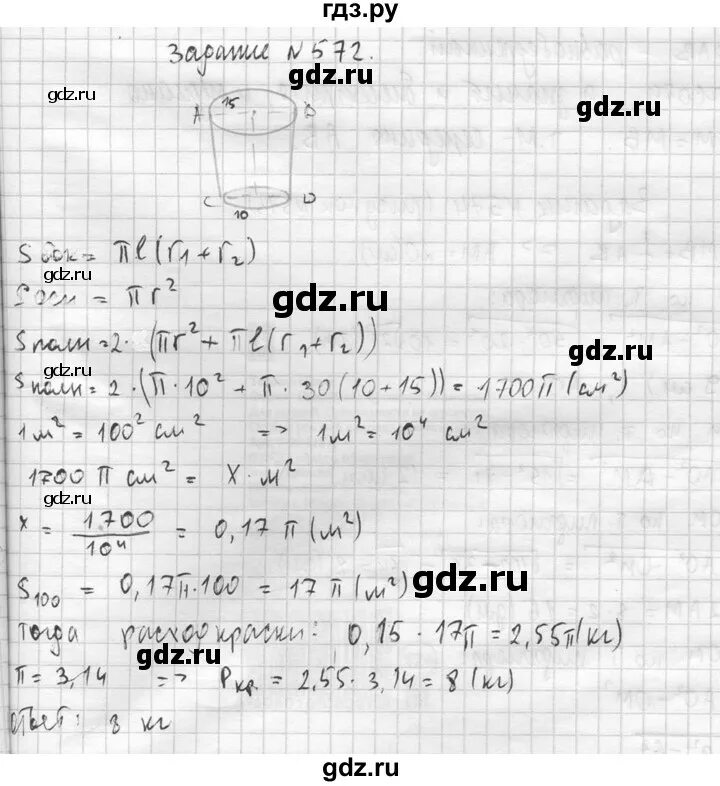 гдз.ру
Задание N 572.
gdz.ru
gdz.ru
gdz.ru
A 15 B
C 10 D
Sбок = πl(r₁+r₂)
gdz.ru
Sосн = πr²
gdz.ru
Sполн = 2·(πr²+πl(r₁+r₂))
gdz.ru
Sполн = 2·(π·10²+π·30(10+15)) = 1700π (см²)
1м² = 100² см² => 1м² = 10⁴ см²
1700 π см² = x·м²
gdz.ru
gdz.ru
x = 1700/10⁴ = 0,17 π (м²)
S₁₀₀ = 0,17π·100 = 17 π (м²)
gdz.ru
тогда расход краски: 0,15·17π = 2,55π(кг)
gdz.ru
π = 3,14 => Pкр. = 2,55·3,14 = 8 (кг)
ответ: 8 кг
gdz.ru
gdz.ru